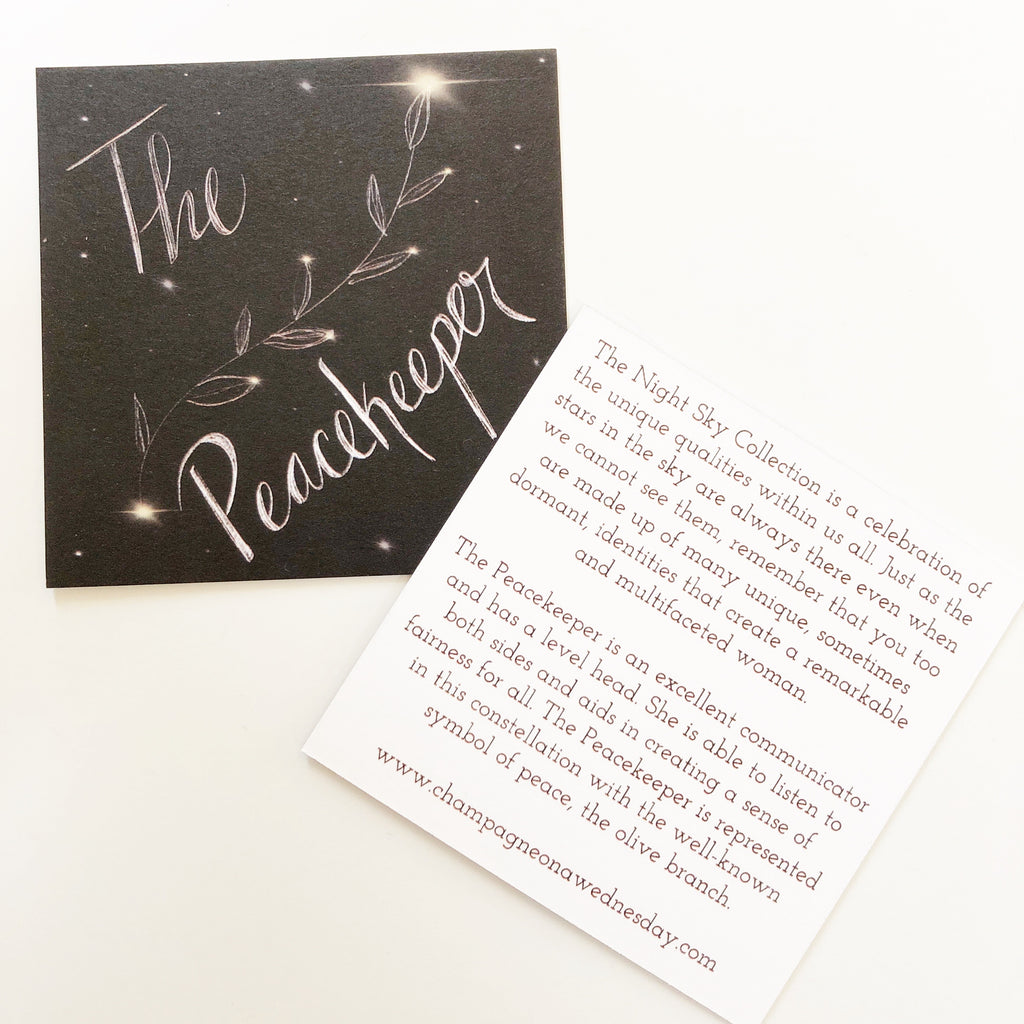 The
Peacekeeper
The Night Sky Collection is a celebration of
the unique qualities within us all. Just as the
stars in the sky are always there even when
we cannot see them, remember that you too
are made up of many unique, sometimes
dormant, identities that create a remarkable
and multifaceted woman.
The Peacekeeper is an excellent communicator
and has a level head. She is able to listen to
both sides and aids in creating a sense of
fairness for all. The Peacekeeper is represented
in this constellation with the well-known
symbol of peace, the olive branch.
www.champagneonawednesday.com